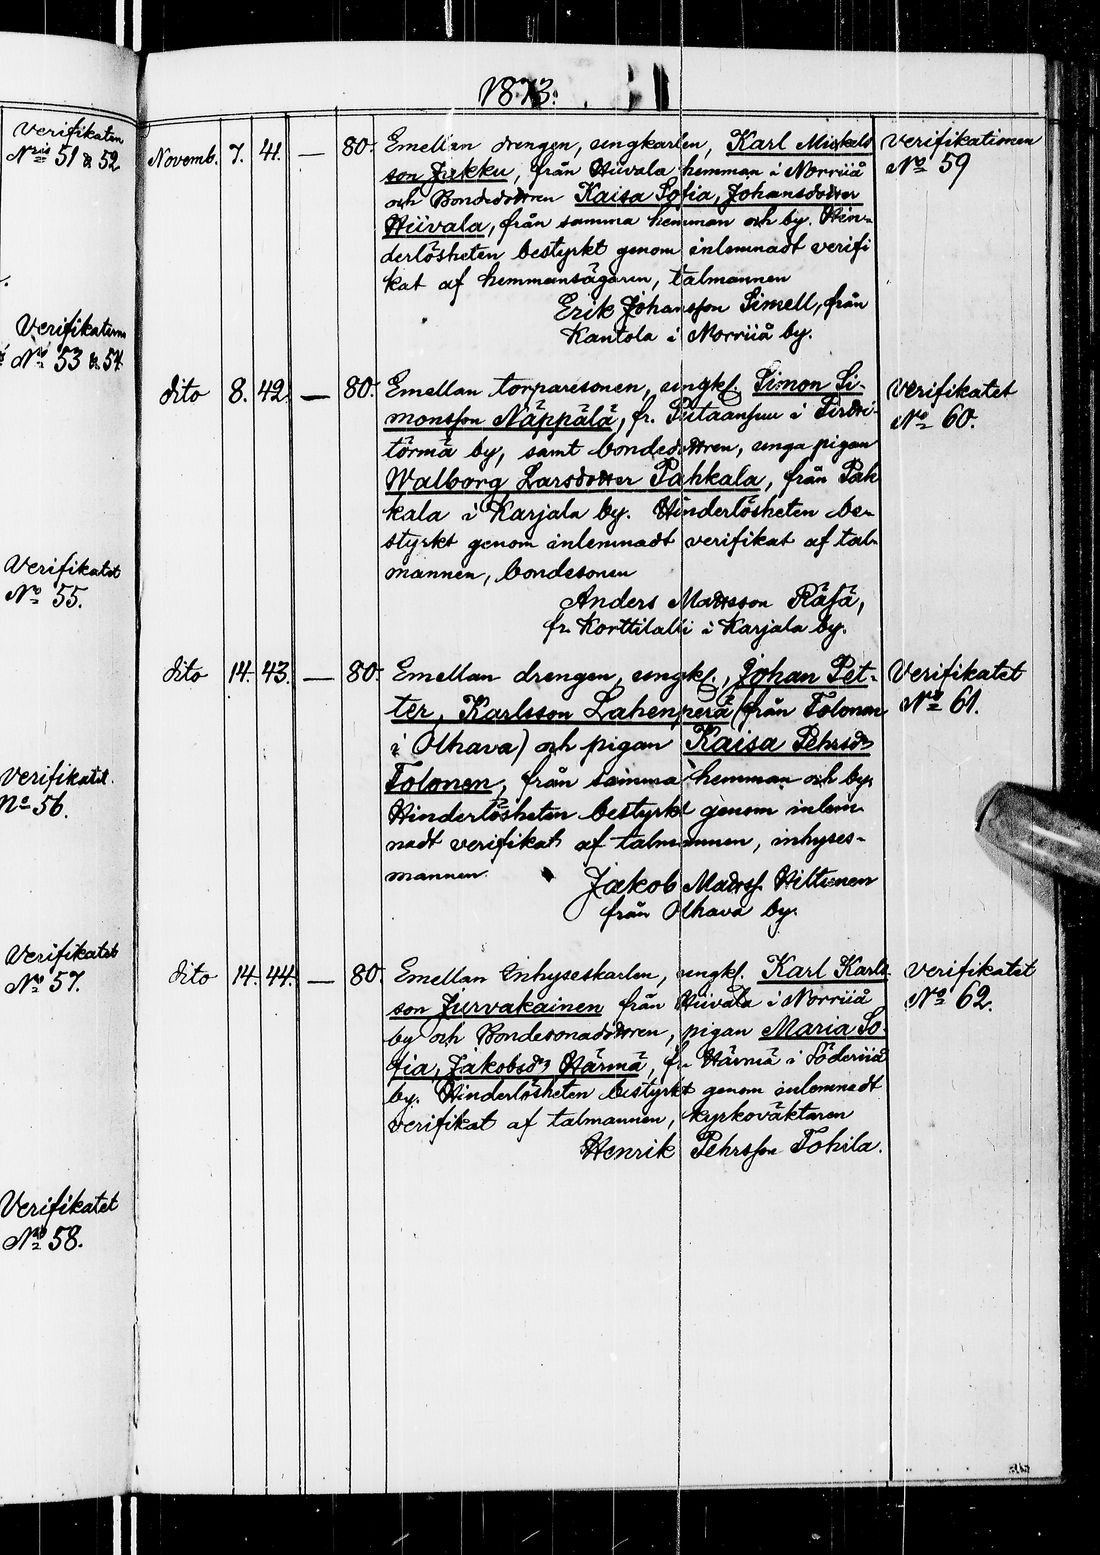 1873.
Verifikaten
Nris 51 & 52
Verifikaten
No 53 & 54
Verifikatet
No 55.
Verifikatet
No 56.
Verifikatet
No 57.
Verifikatet
No 58.
Novemb. 7. 41. — 80. Emellan drengen, ungkarlen, Karl Mickels Verifikationen
son Jukku, från Hiivala hemman i Norriiå No 59
och Bondedottren Kaisa Sofia, Johansdotter
Hiivala, från samma hemman och by. Hin-
derlösheten bestyrkt genom inlemnadt verifi
kat af hemmansägaren, talmannen
Erik Johansson Simell, från
Kantola i Norriiå by.
dito 8. 42. — 80. Emellan torparesonen, ungk. Simon Si- Verifikatet
monsson Näppälä, fr. i No 60.
törmä by, samt bondedottren, unga pigan
Walborg Larsdotter Pahkala, från Pah
kala i Karjala by. Hinderlösheten be-
styrkt genom inlemnadt verifikat af tal-
mannen, bondesonen
Anders Mattsson Räfä,
fr. Korttilalli i Karjala by.
dito 14. 43. — 80. Emellan drengen, ungk., Johan Pet- Verifikatet
ter, Karlsson Lahenperä (från Tolonen No 61.
i Olhava) och pigan Kaisa Pehrsdr
Tolonen, från samma hemman och by.
Hinderlösheten bestyrkt genom inlem-
nadt verifikat af talmannen, inhyses-
mannen
Jakob Matss. Hiltunen
från Olhava by.
dito 14. 44. — 80. Emellan Inhyseskarlen, ungk. Karl Karls- Verifikatet
son Jurvakainen från Hiivala i Norriiå No 62.
by och Bondesonadottren, pigan Maria So-
fia, Jakobsdr Härmä, fr. Härmä i Söderiiå
by. Hinderlösheten bestyrkt genom inlemnadt
verifikat af talmannen, kyrkoväktaren
Henrik Pehrsson Tohila.